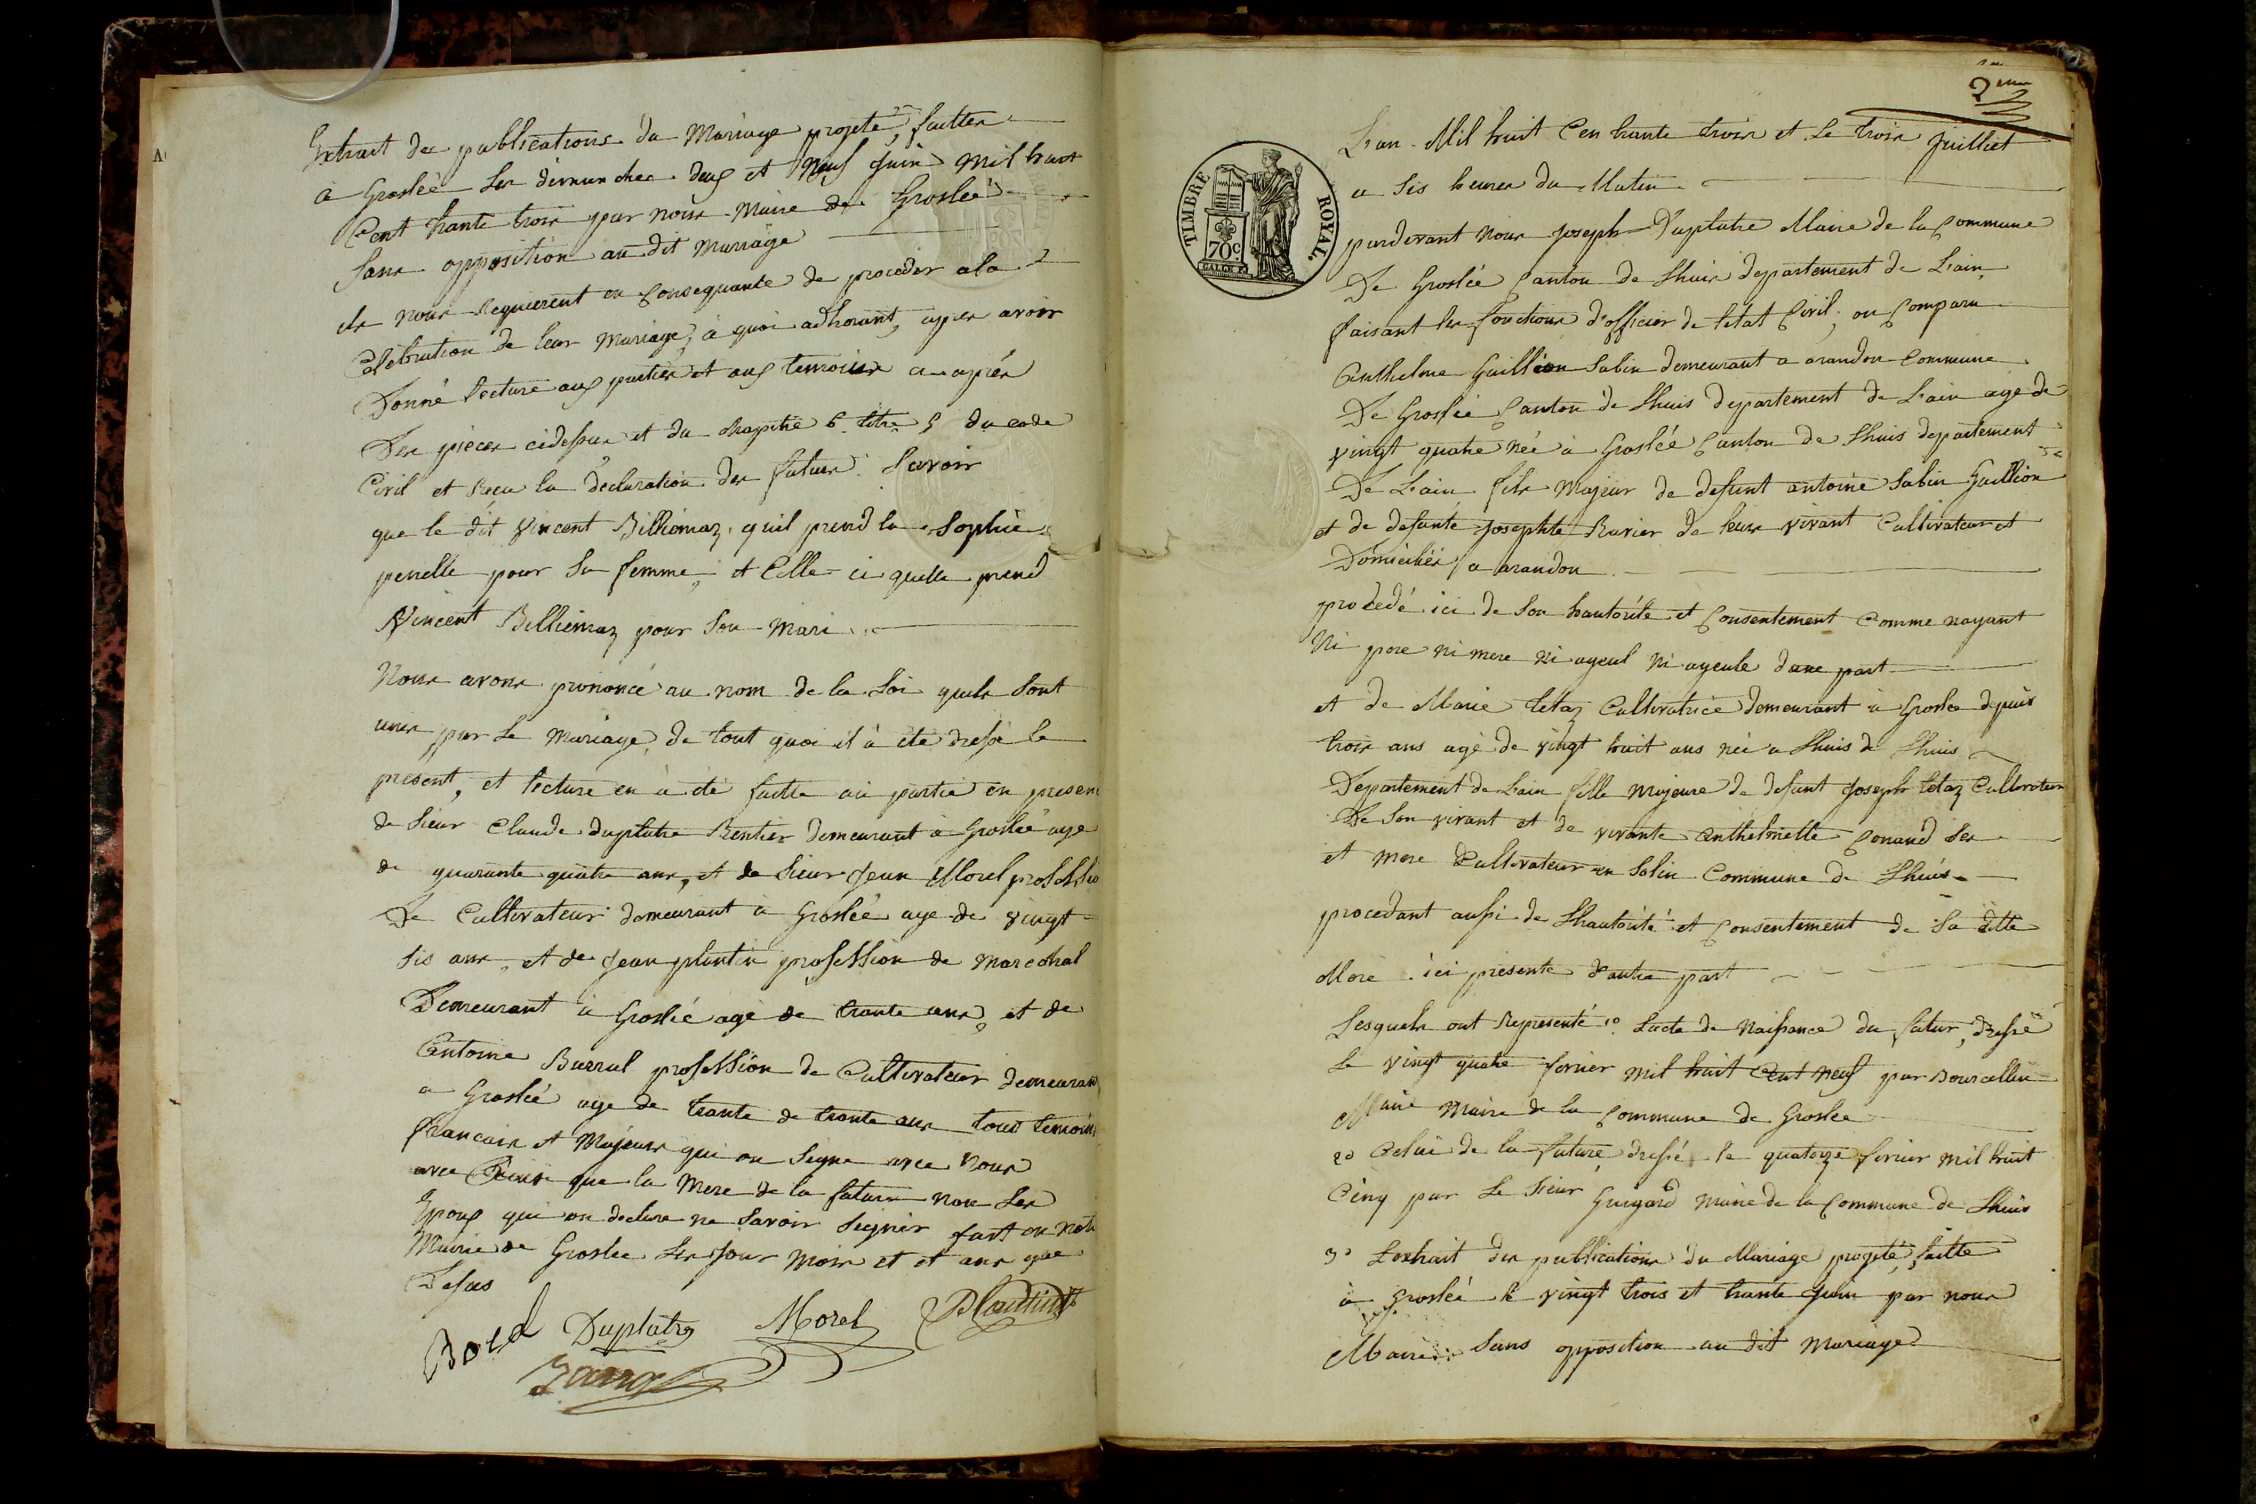 Extrait des publications du Mariage projeté, faittes
à Groslée les dimmanches deux et Neuf Juin Mil huit
Cent trante trois par nous Maire de Groslée
sans opposition au dit Mariage
ils nous Requierent en Consequante de proceder a la
Célèbration de leur Mariage, à quoi adhorant, apres avoir
Donné lecture aux parties et aux temoins ci-après
Des pièces cidessus et du chapitre 6 titre 5 du code
Civil et Recu la declaration des futurs. Savoir
que le dit Vincent Billiémaz, quil prend la Sophie
perelle pour Sa femme, et Celle-ci quelle prend
Vincent Billiemaz pour Son Mari
Nous avons prononcé au nom de la Loi quils Sont
unis par le Mariage, de tout quoi il à été dressé le
present, et lecture en à été faitte aù partie en presen
de Sieur Claude Duplatre Rentier demeurant à Groslée age
de quarante quatre ans, et de Sieur Jean Morel professio
De Cultivateur demeurant à Groslée age de vingt
Sis ans, et de Jean plantin profession de Marechal
Demeurant à Groslée agé de trante ans, et de
Antoine profession de Cultivateur demeurant
a Groslée age de trante de trante ans tous temoins
francais et Majeurs qui on Signe avec Nous
avec que la Mere de la future non Les
Epoux qui on declare ne Savoir Signér fait en notre
Mairie de Groslée Les Jour Mois et et ans que
Desus
Duplatre Morel Plantin
2eme
L'an Mil huit Cen trante trois et Le trois Juilliet
a Sis heures du Matin
pardevant Nous Joseph Duplatre Maire de la Commune
De Groslée Canton de Lhuis departement de L'ain
faisant les fonctions d'officier de letat Civil, on Comparu
Anthelme Guillion Sabin demeurant a arandon Commune
De Groslée Canton de Lhuis departement de L'ain agé de
vingt quatre née à Groslée Canton de Lhuis departement
De L'ain fils Majeur de defunt antoine Sabin Guillion
et de defunte Josephte Ruvier de leurs vivant Cultivateur et
Domiciliés a arandon
procedé ici de Son hautorite et Consentement Comme nayant
Ni pere ni mere Ni ayeul Ni ayeule dune part
et de Marie tetaz Cultivatrice demeurant à Groslée depuis
trois ans agé de vingt huit ans née a Lhuis de Lhuis
Departement de Lain fille Majeure de defunt Joseph tetaz Cultivateur
De Son vivant et de vivante Anthelmette Conand Ses
et Mere Cultivateur en Solin Commune de Lhuis
procedant aussi de Lhautorité et Consentement de Sa ditte
Mere ici présente d'autre part
Lesquels ont Representé 1o Lacte de Naissance du futur, dressé
Le vingt quatre fevrier mil huit Cent Neuf par Bourcellin
Marie Maire de la Commune de Groslée
2o Celui de la future, dressé le quatorze fevrier Mil huit
Cinq par Le Sieur Guigard Maire de la Commune de Lhuis
3o Lextrait des publications du Mariage projeté, faitte
à Groslée le vingt trois et trante Juin par nous
Maire Sans opposition au dit Mariage
TIMBRE ROYAL.
70c